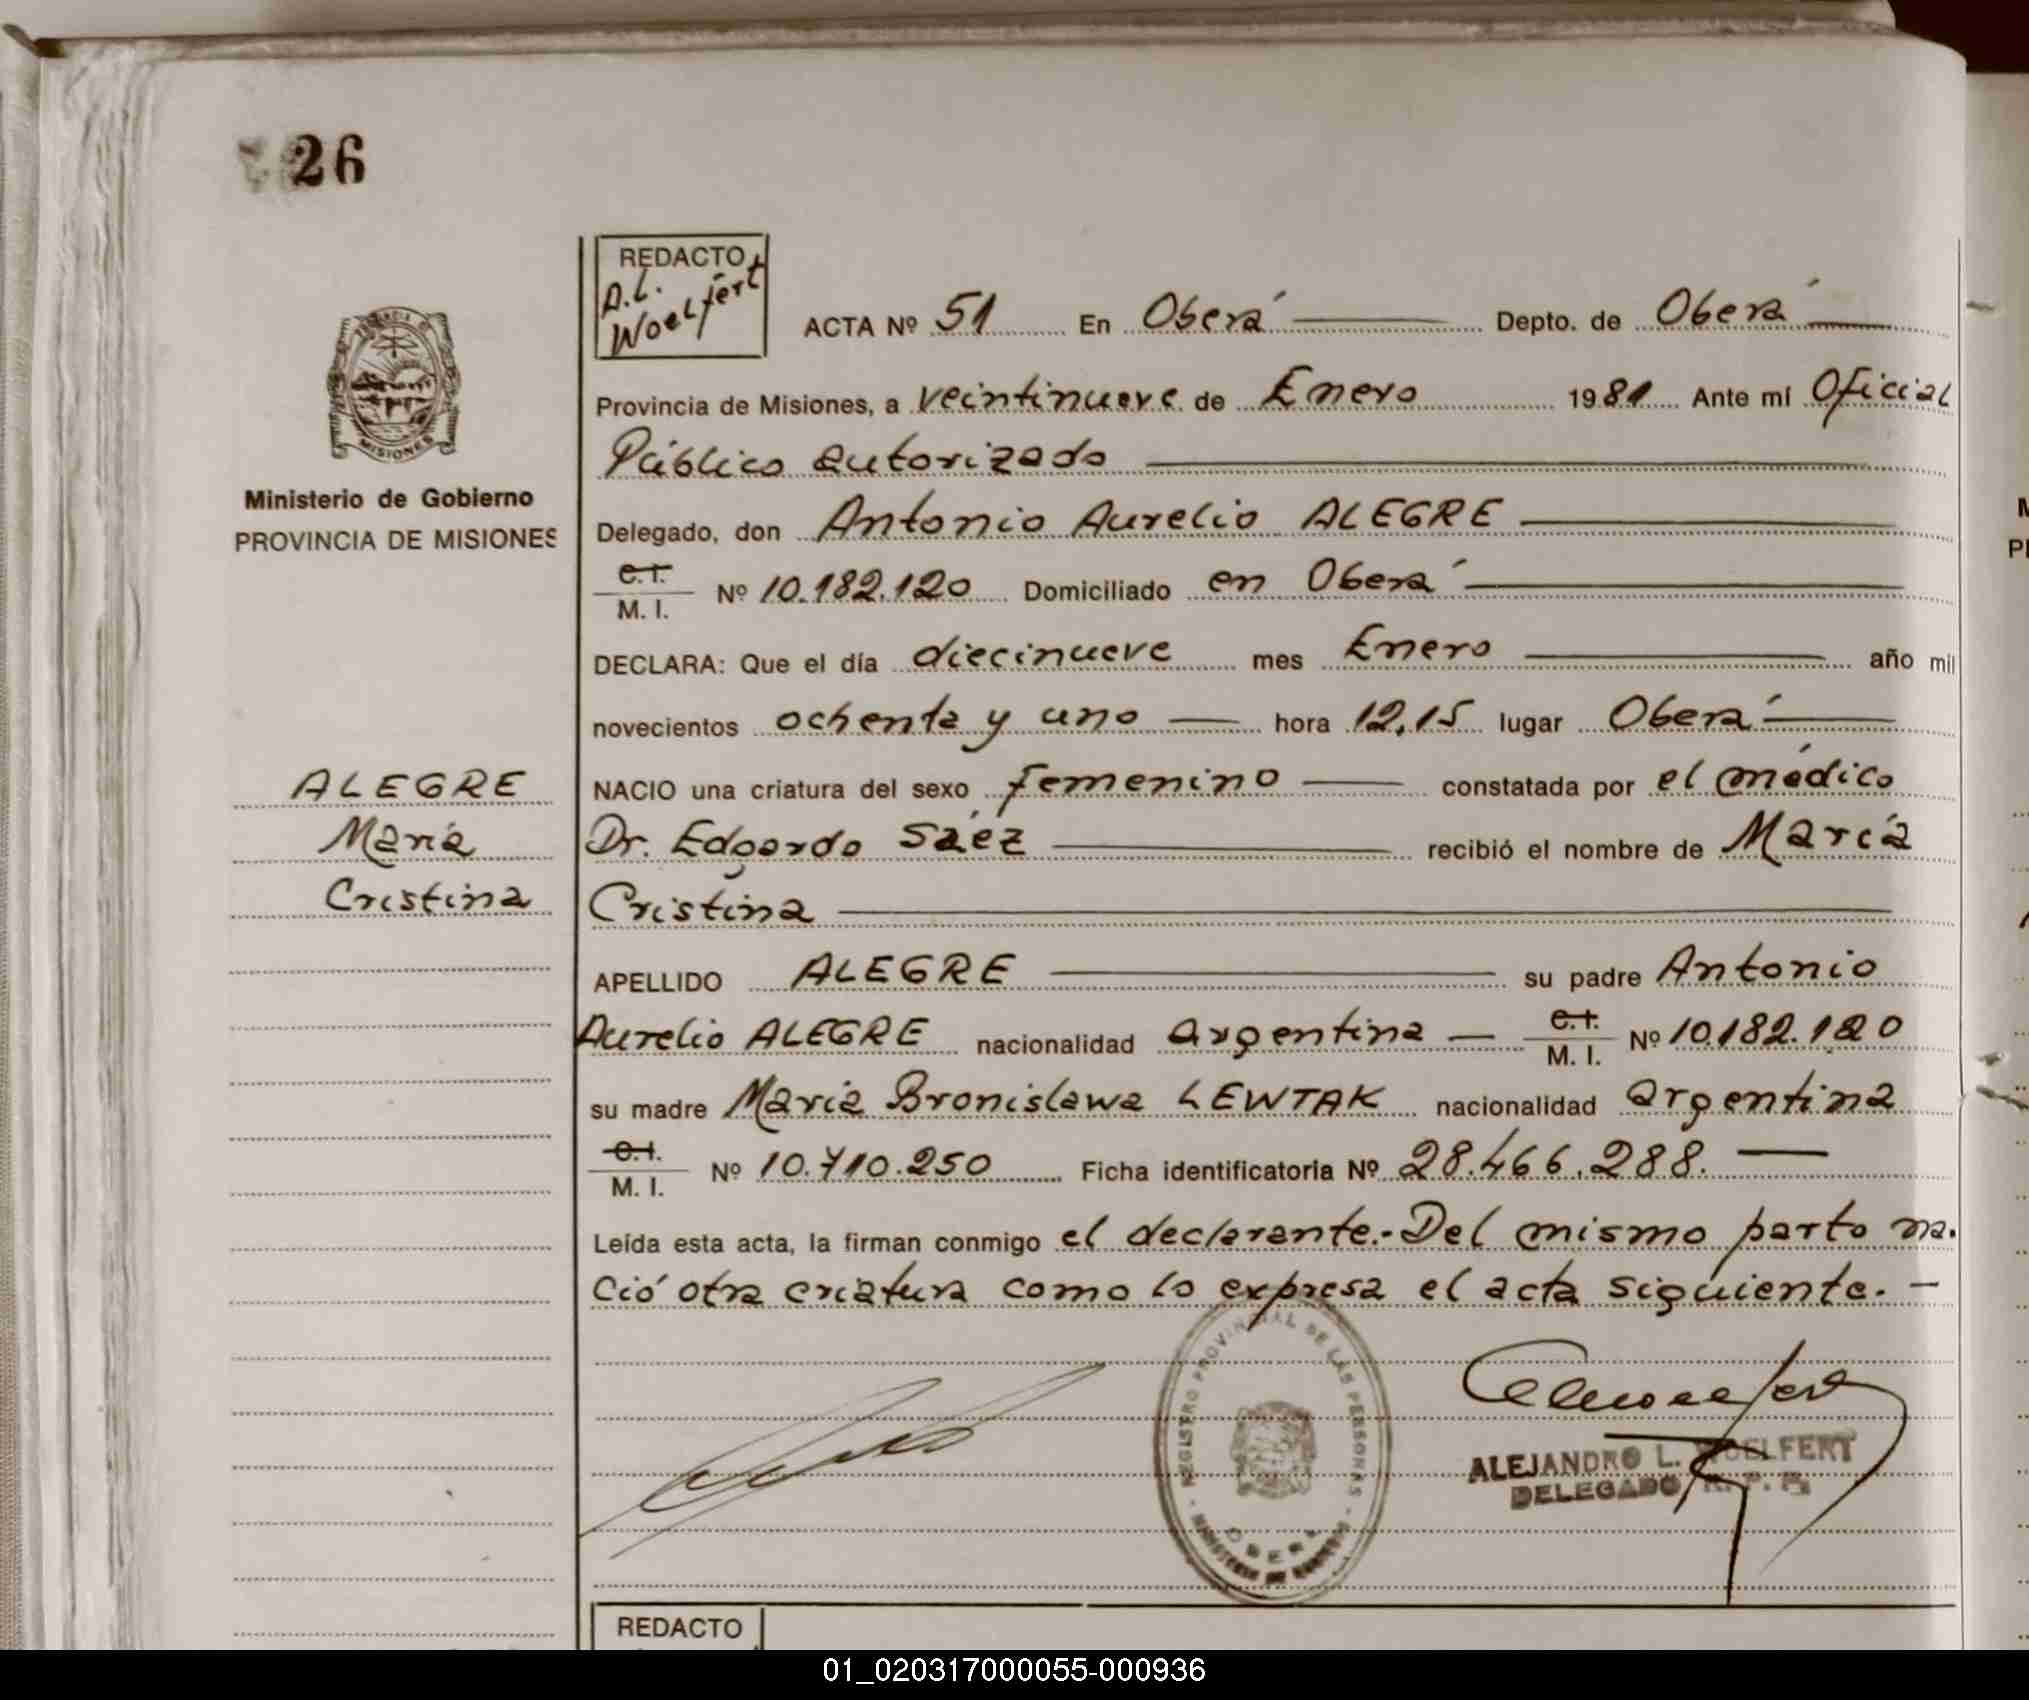 26
REDACTO
A.L.
Woelfert
ACTA Nº 51 En Oberá Depto. de Oberá
Provincia de Misiones, a veintinueve de Enero 1981 Ante mí Oficial
Público autorizado
Delegado, don Antonio Aurelio ALEGRE
C.I.
M. I. Nº 10.182.120 Domiciliado en Oberá
DECLARA: Que el día diecinueve mes Enero año mil
novecientos ochenta y uno hora 12,15 lugar Oberá
NACIO una criatura del sexo femenino constatada por el médico
Dr. Edgardo Sáez recibió el nombre de María
Cristina
APELLIDO ALEGRE su padre Antonio
Aurelio ALEGRE nacionalidad argentina C.I. M. I. Nº 10.182.120
su madre María Bronislawa LEWTAK nacionalidad argentina
C.I.
M. I. Nº 10.710.250 Ficha identificatoria Nº 28.466.288.
Leída esta acta, la firman conmigo el declarante.- Del mismo parto na.
ció otra criatura como lo expresa el acta siguiente. -
PROVINCIA DE
MISIONES
Ministerio de Gobierno
PROVINCIA DE MISIONES
ALEGRE
María
Cristina
REGISTRO PROVINCIAL DE LAS PERSONAS
OBERA
MINISTERIO DE GOBIERNO
ALEJANDRO L. WOELFERT
DELEGADO R. P. P.
REDACTO
M
PI
01_020317000055-000936